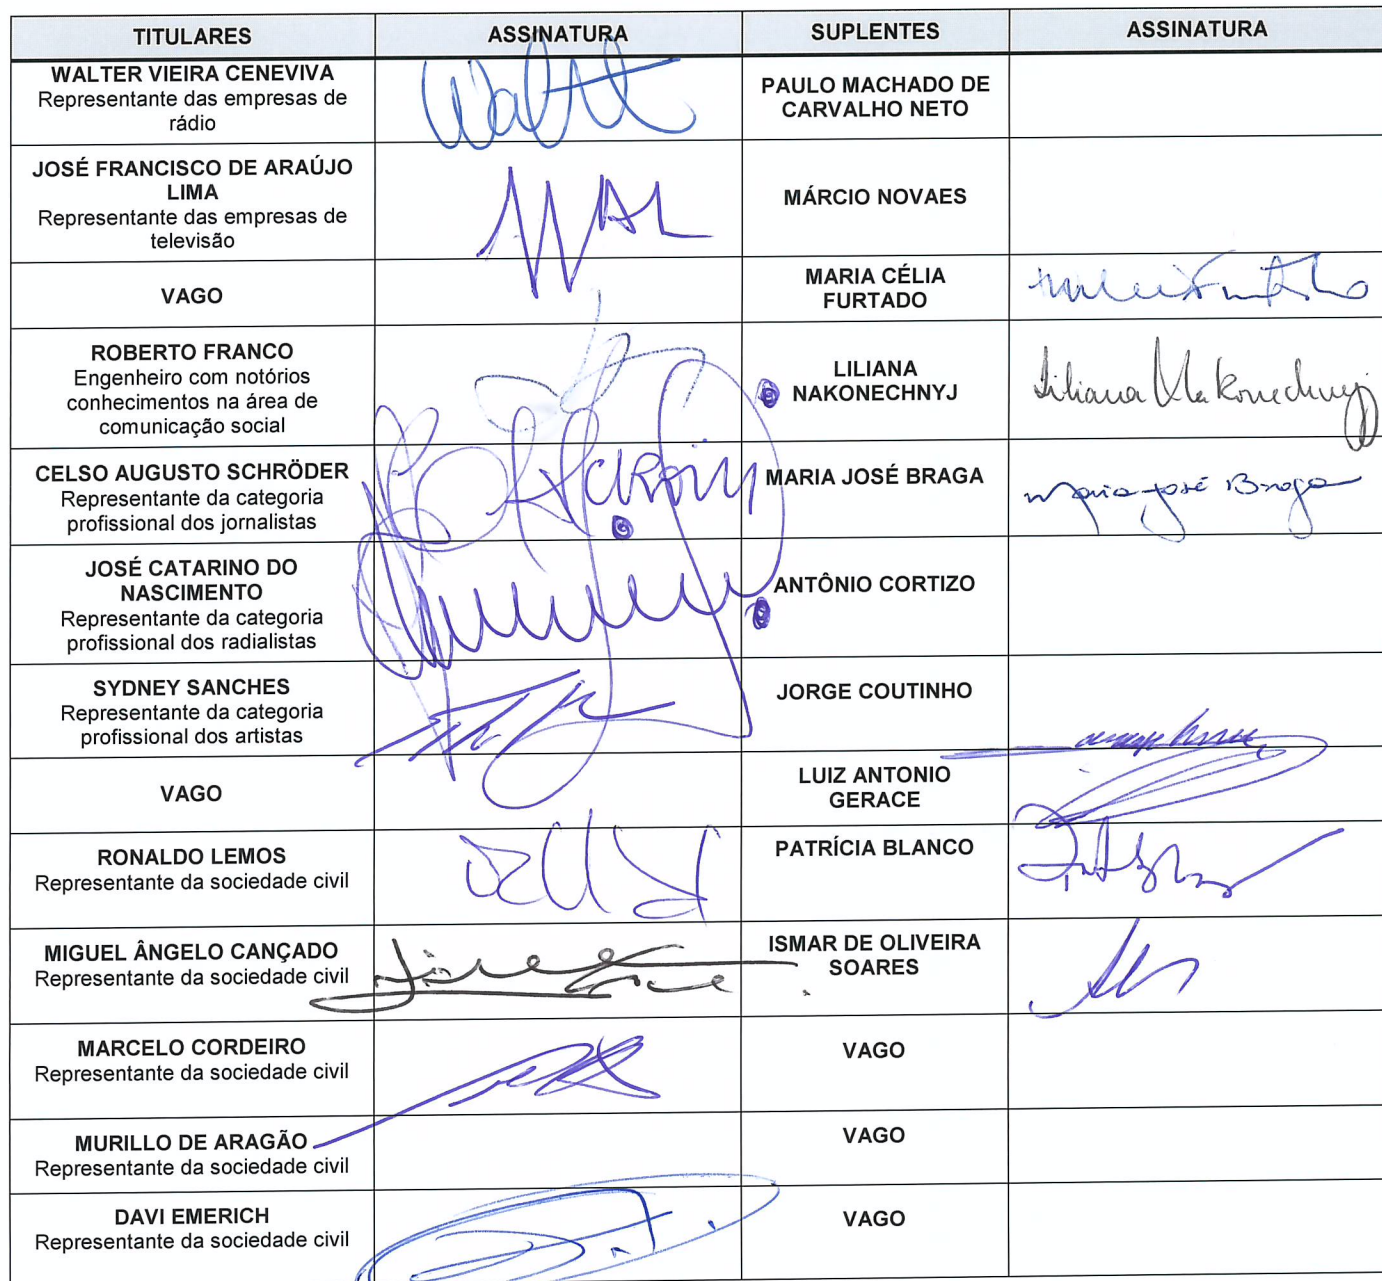 TITULARES ASSINATURA SUPLENTES ASSINATURA
WALTER VIEIRA CENEVIVA
Representante das empresas de
rádio
PAULO MACHADO DE
CARVALHO NETO
JOSÉ FRANCISCO DE ARAÚJO
LIMA
Representante das empresas de
televisão
MÁRCIO NOVAES
VAGO
MARIA CÉLIA
FURTADO
ROBERTO FRANCO
Engenheiro com notórios
conhecimentos na área de
comunicação social
LILIANA
NAKONECHNYJ
Liliana Nakonechnyj
CELSO AUGUSTO SCHRÖDER
Representante da categoria
profissional dos jornalistas
MARIA JOSÉ BRAGA
Maria José Braga
JOSÉ CATARINO DO
NASCIMENTO
Representante da categoria
profissional dos radialistas
ANTÔNIO CORTIZO
SYDNEY SANCHES
Representante da categoria
profissional dos artistas
JORGE COUTINHO
VAGO
LUIZ ANTONIO
GERACE
RONALDO LEMOS
Representante da sociedade civil
PATRÍCIA BLANCO
MIGUEL ÂNGELO CANÇADO
Representante da sociedade civil
ISMAR DE OLIVEIRA
SOARES
MARCELO CORDEIRO
Representante da sociedade civil
VAGO
MURILLO DE ARAGÃO
Representante da sociedade civil
VAGO
DAVI EMERICH
Representante da sociedade civil
VAGO